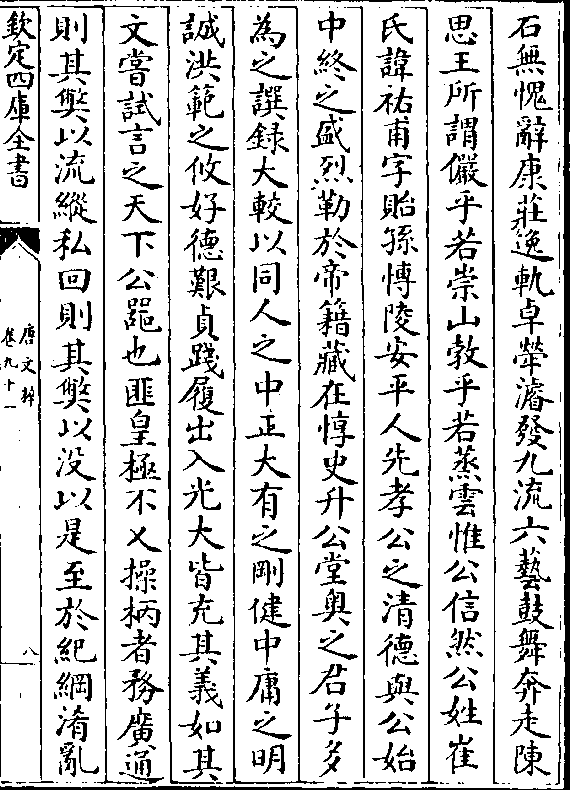 石無愧辭康莊逸軌卓犖濬發九流六藝鼓舞奔走陳
思王所謂儼乎若崇山敦乎若蒸雲惟公信然公姓崔
氏諱祐甫字貽孫博陵安平人先孝公之清德與公始
中終之盛烈勒於帝籍藏在惇史升公堂奥之君子多
為之譔録大較以同人之中正大有之剛健中庸之明
誠洪範之攸好德艱貞踐履出入光大皆充其義如其
文嘗試言之天下公噐也匪皇極不乂操柄者務廣通
則其獘以流縱私回則其獘以没以是至於紀綱淆亂
欽定四庫全書
唐文粹
卷九十一
八